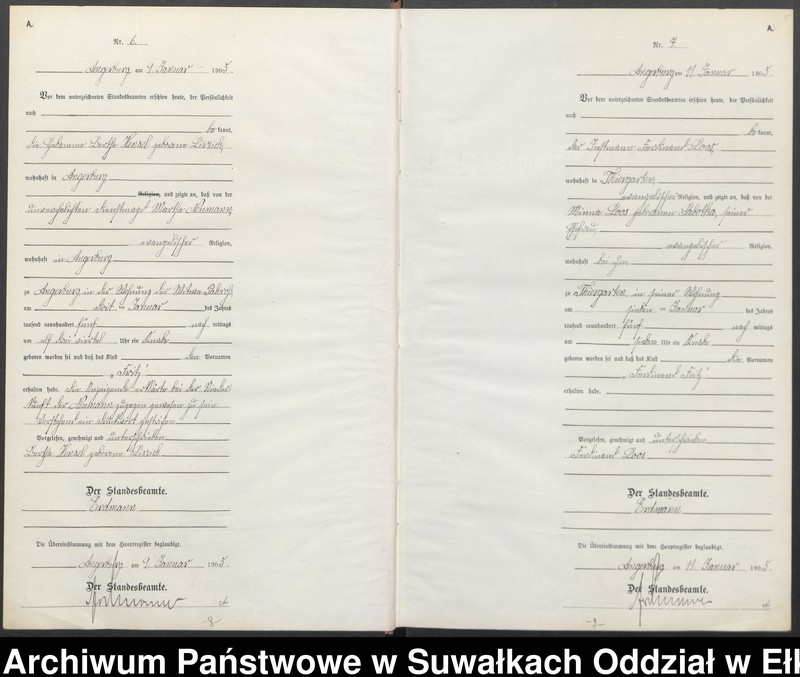 A.
Nr. 6.
Angerburg am 9. Januar 1905.
Vor dem unterzeichneten Standesbeamten erschien heute, der Persönlichkeit
nach
be kannt,
die Hebamme Bertha Hensel geborene
wohnhaft in Angerburg
Religion, und zeigte an, daß von der
unverehelichten Dienstmagd Martha Neumann,
evangelischer Religion,
wohnhaft in Angerburg
zu Angerburg in der Wohnung der Witwe
am des Jahres
tausend neunhundert fünf nach mittags
um elf drei viertel Uhr ein Knabe
geboren worden sei und daß das Kind den Vornamen
„Fritz"
erhalten habe. Die Anzeigende erklärte bei der Nieder
kunft der Neumann zugegen gewesen zu sein
Vorstehend ein Druckwort gestrichen
Vorgelesen, genehmigt und unterschrieben
Bertha Hensel geborene
Der Standesbeamte.
Erdmann
Die Übereinstimmung mit dem Hauptregister beglaubigt.
Angerburg am 9. Januar 1905.
Der Standesbeamte.
-8-
A.
Nr. 7.
Angerburg am 11. Januar 1905.
Vor dem unterzeichneten Standesbeamten erschien heute, der Persönlichkeit
nach
be kannt,
der Instmann Ferdinand Loos,
wohnhaft in Thiergarten,
evangelischer Religion, und zeigte an, daß von der
Minna Loos geborenen Sabotka, seiner
Ehefrau,
evangelischer Religion,
wohnhaft bei ihm,
zu Thiergarten, in seiner Wohnung
am sieben ten Januar des Jahres
tausend neunhundert fünf nach mittags
um sieben Uhr ein Knabe
geboren worden sei und daß das Kind die Vornamen
„Ferdinand Fritz"
erhalten habe.
Vorgelesen, genehmigt und unterschrieben
Ferdinand Loos
Der Standesbeamte.
Erdmann
Die Übereinstimmung mit dem Hauptregister beglaubigt.
Angerburg am 11. Januar 1905.
Der Standesbeamte.
-9-
Archiwum Państwowe w Suwałkach Oddział w Ełk